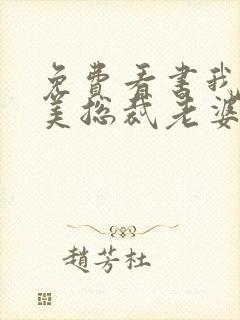 免費看書我
美总裁老婆
趙芳杜